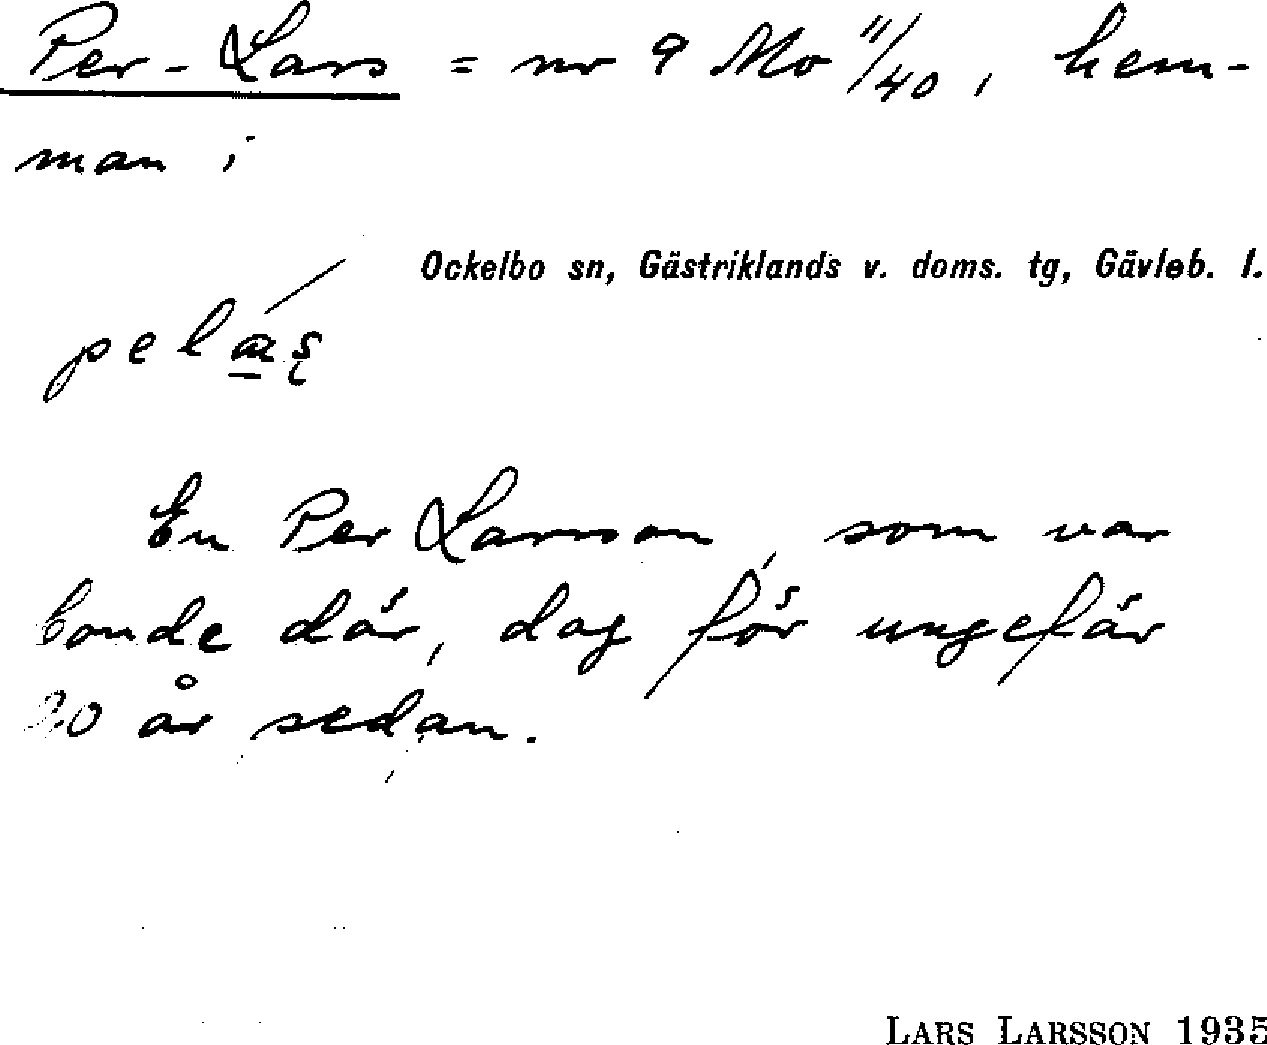 Per-Lars = nr 9 Mo 11/40, hem-
man i
Ockelbo sn, Gästriklands v. doms. tg, Gävleb. l.
En Per Larsson, som var
bonde där, dog för ungefär
år sedan.
LARS LARSSON 1935